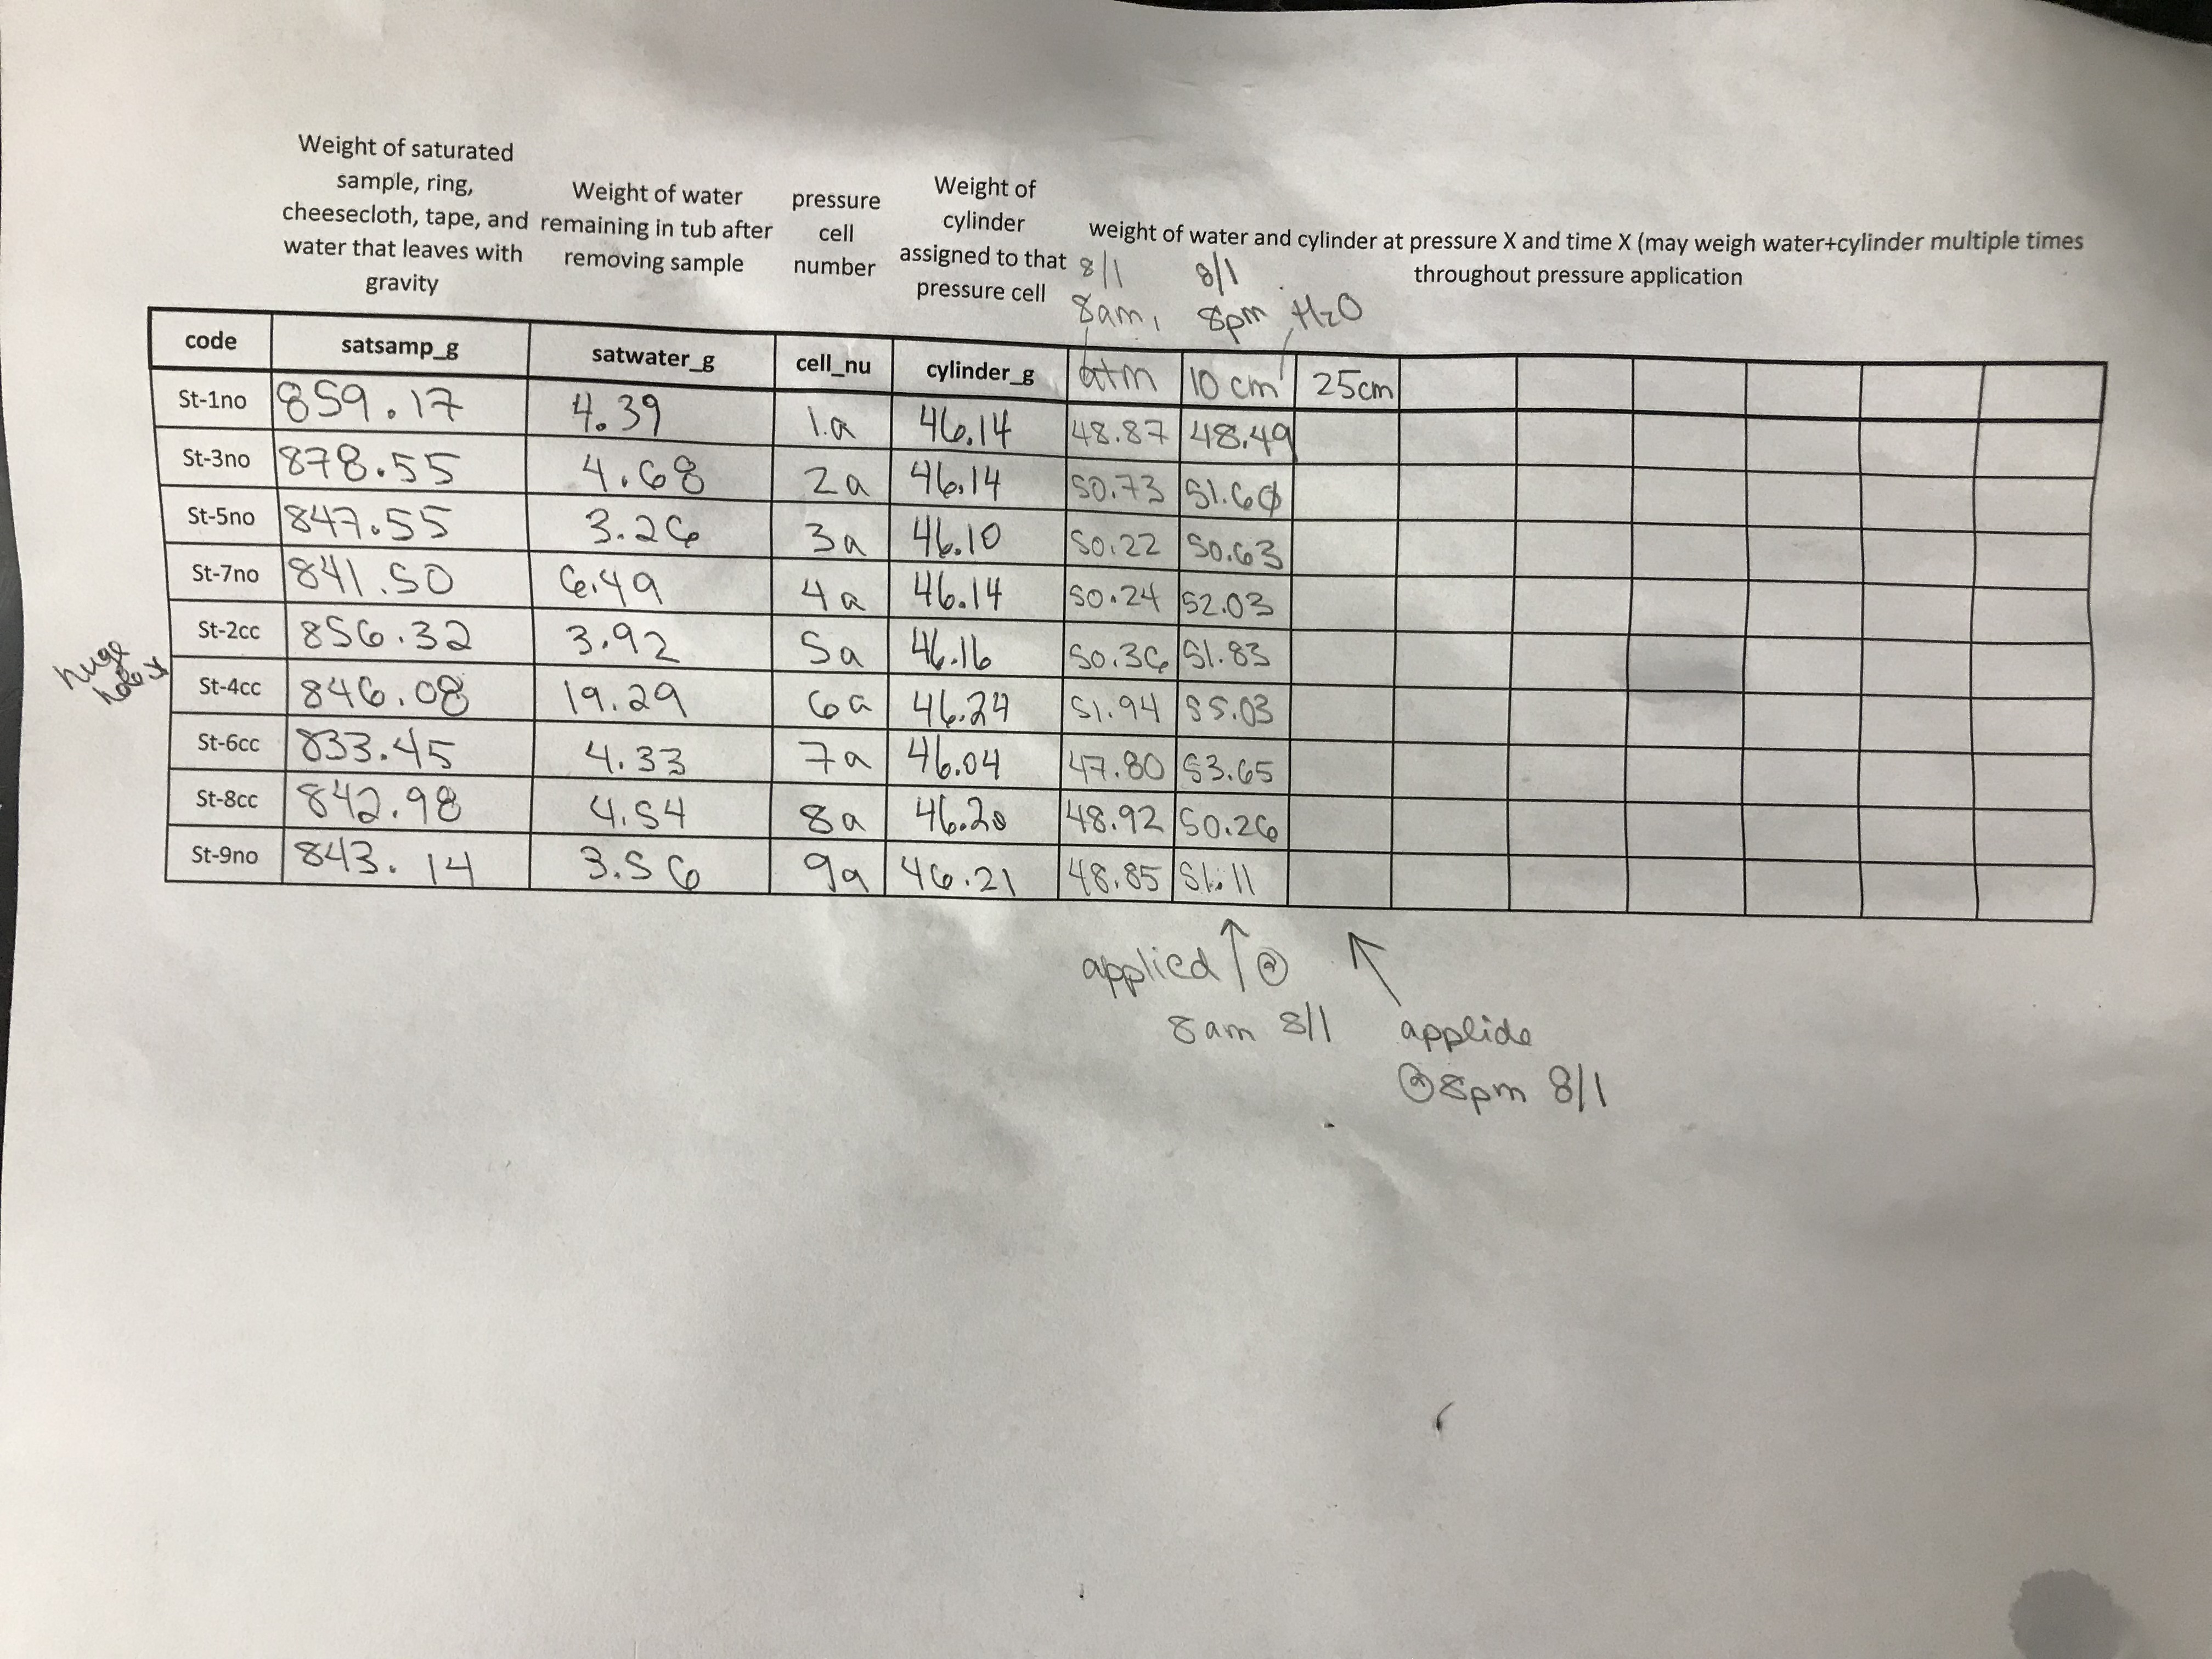 Weight of saturated
sample, ring,
cheesecloth, tape, and
water that leaves with
gravity
Weight of water
remaining in tub after
removing sample
pressure
cell
number
Weight of
cylinder
assigned to that
pressure cell
weight of water and cylinder at pressure X and time X (may weigh water+cylinder multiple times
throughout pressure application
8/1
8am
8/1
8pm
H2O
code satsamp_g satwater_g cell_nu cylinder_g atm 10 cm 25cm
St-1no 859.17 4.39 1a 46.14 48.87 48.49
St-3no 878.55 4.68 2a 46.14 50.73 51.60
St-5no 847.55 3.26 3a 46.10 50.22 50.63
St-7no 841.50 6.49 4a 46.14 50.24 52.03
St-2cc 856.32 3.92 5a 46.16 50.36 51.83
huge
St-4cc 846.08 19.29 6a 46.24 51.94 55.03
St-6cc 833.45 4.33 7a 46.04 47.80 53.65
St-8cc 842.98 4.54 8a 46.20 48.92 50.26
St-9no 843.14 3.56 9a 46.21 48.85 51.11
applied @
8am 8/1
applide
@8pm 8/1